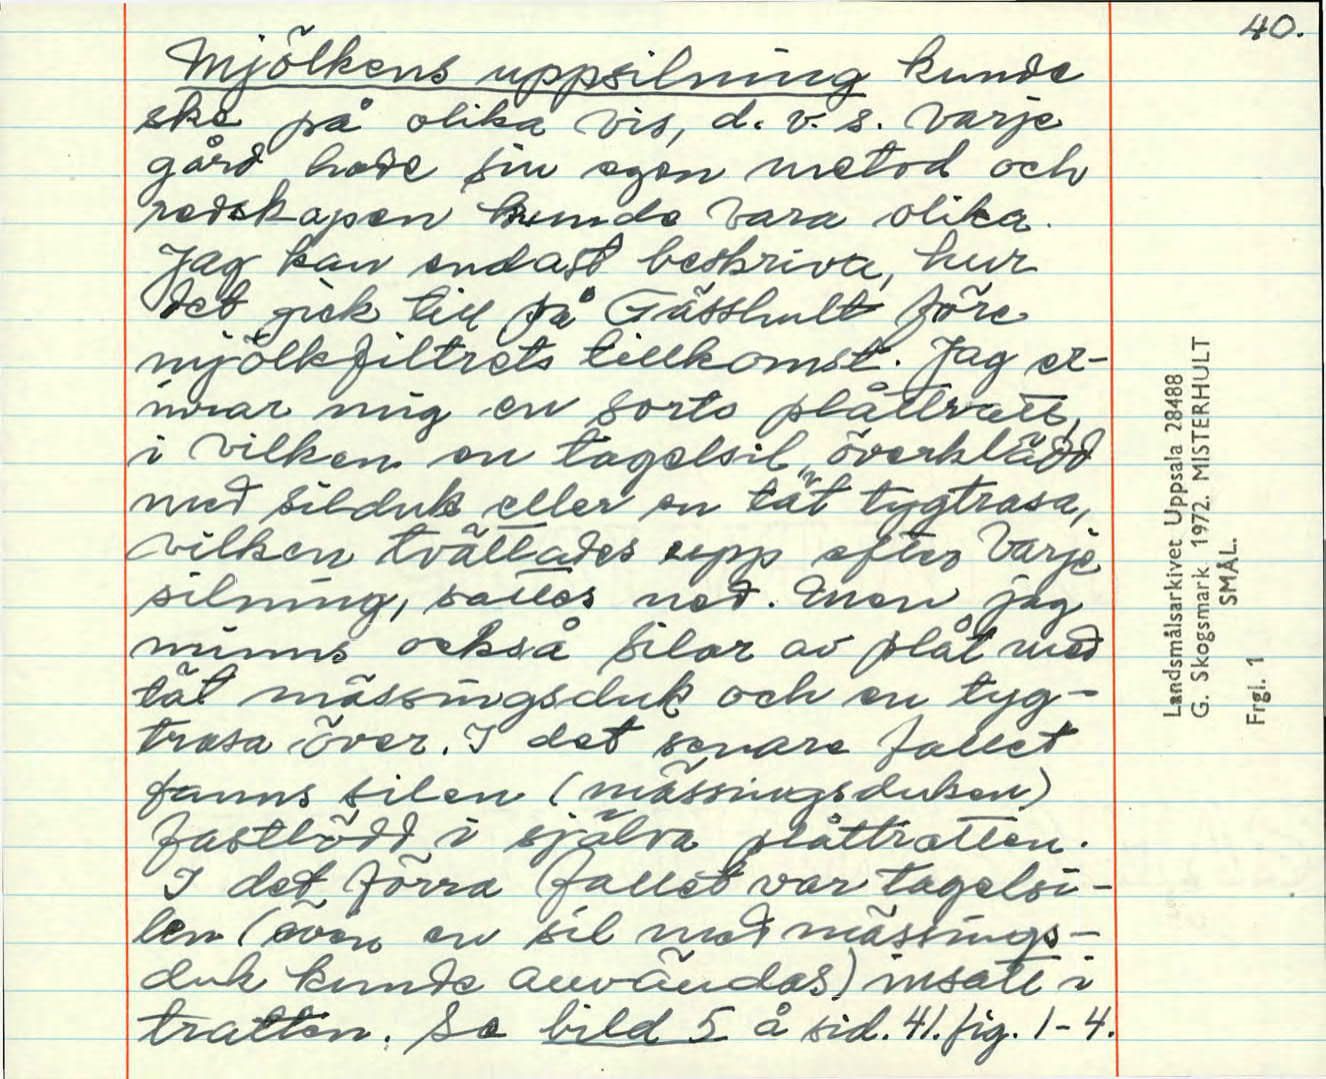 40.
Mjölkens uppsilning kunde
ske på olika vis, d. v. s. varje
gård hade sin egen metod och
redskapen kunde vara olika.
Jag kan endast beskriva, hur
det gick till på Gässhult före
mjölkfiltrets tillkomst. Jag er-
inrar mig en sorts plåttratt,
i vilken en tagelsil, överklädd
med silduk eller en tät tygtrasa,
vilken tvättades upp efter varje
silning, sattes ned. Men jag
minns också silar av plåt med
tät mässingsduk och en tyg-
trasa över. I det senare fallet
fanns silen (mässingsduken)
fastlödd i själva plåttratten.
I det förra fallet var tagelsi-
len (även en sil med mässings-
duk kunde användas) insatt i
tratten. Se bild 5 å sid. 41. fig. 1-4.
Landsmålsarkivet Uppsala 28488
G. Skogsmark 1972. MISTERHULT
SMÅL.
Frgl. 1